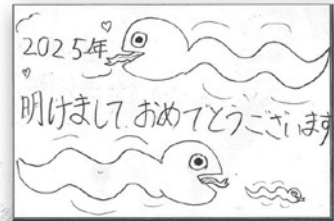 2025年
明けまして おめでとうございます